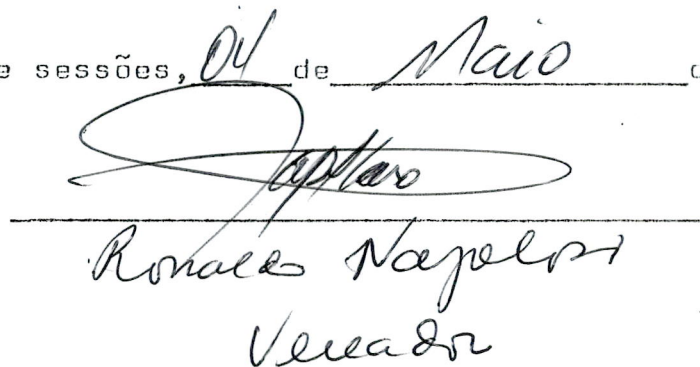 e sessões, 04 de Maio d
Ronaldo Napolosi
Vereador